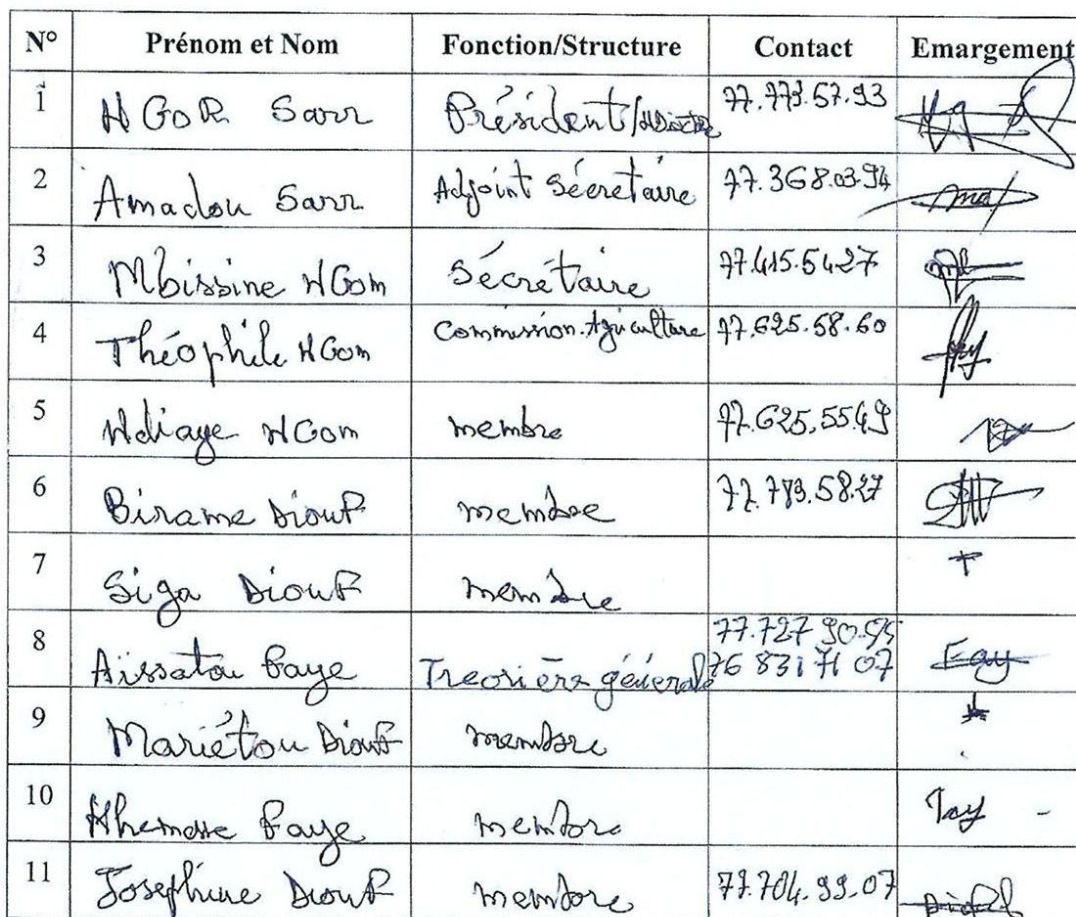 N° Prénom et Nom Fonction/Structure Contact Emargement
1 NGOR Sarr Président 77.773.57.93
2 Amadou Sarr Adjoint Sécretaire 77.368.03.94
3 Mbissine NGom Sécrétaire 77.415.54.27
4 Théophile NGom Commission Agriculture 77.625.58.60
5 Ndiaye NGom membre 77.625.55.49
6 Birame Diouf membre 77.783.58.27
7 Siga Diouf membre
8 Aïssatou Faye Treorière générale 77.727 90.95
76 831 71 07 Fay
9 Mariétou Diouf membre
10 Khemesse Faye membre
11 Josephine Diouf membre 77.704.99.07